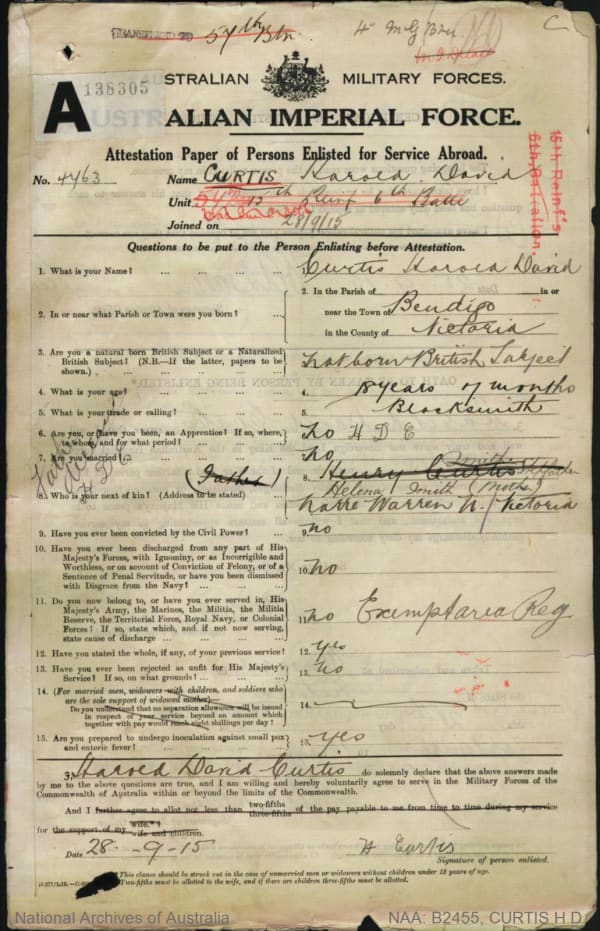 57th Btn
4" M G Bn
C
A
138305
STRALIAN MILITARY FORCES.
ALIAN IMPERIAL FORCE.
Attestation Paper of Persons Enlisted for Service Abroad.
15th Reinf's
6th Battalion.
No. 4463 Name CURTIS Harold David
Unit 15th Reinf 6th Battn
Joined on 28/9/15
Questions to be put to the Person Enlisting before Attestation.
1. What is your Name? ... ... ... ... Curtis Harold David
2. In or near what Parish or Town were you born? ...
2. In the Parish of in or
near the Town of Bendigo
in the County of Victoria
3. Are you a natural born British Subject or a Naturalized
British Subject? (N.B.—If the latter, papers to be
shown.) ... ... ... ...
Nat born British Subject
4. What is your age? ... ... ... ... 4. 18 years months
5. What is your trade or calling? ... ... ... 5. Blacksmith
6. Are you, or have you been, an Apprentice? If so, where,
to whom, and for what period? ... ... ...
6. No H D C
7. Are you married? ... ... ... 7. No
(Father)
8. Who is your next of kin? (Address to be stated) ...
8. Henry Curtis Smith Stepfather
Helena Smith (Mother)
Narre Warren N. Victoria
9. Have you ever been convicted by the Civil Power? ... 9. No
10. Have you ever been discharged from any part of His
Majesty's Forces, with Ignominy, or as Incorrigible and
Worthless, or on account of Conviction of Felony, or of a
Sentence of Penal Servitude, or have you been dismissed
with Disgrace from the Navy? ... ... ...
10. No
11. Do you now belong to, or have you ever served in, His
Majesty's Army, the Marines, the Militia, the Militia
Reserve, the Territorial Force, Royal Navy, or Colonial
Forces? If so, state which, and if not now serving,
state cause of discharge ... ... ...
11. No Exempt area Reg
12. Have you stated the whole, if any, of your previous service? 12. Yes
13. Have you ever been rejected as unfit for His Majesty's
Service? If so, on what grounds? ... ... ...
13. No
14. (For married men, widowers with children, and soldiers who
are the sole support of widowed mother)—
Do you understand that no separation allowance will be issued
in respect of your service beyond an amount which
together with pay would reach eight shillings per day?
14.
15. Are you prepared to undergo inoculation against small pox
and enteric fever? ... ... ... ...
15. Yes
I, Harold David Curtis do solemnly declare that the above answers made
by me to the above questions are true, and I am willing and hereby voluntarily agree to serve in the Military Forces of the
Commonwealth of Australia within or beyond the limits of the Commonwealth.
And I further agree to allot not less than two-fifths three-fifths of the pay payable to me from time to time during my service
for the support of my wife.* wife and children.
Date 28-9-15 H Curtis
Signature of person enlisted.
*This clause should be struck out in the case of unmarried men or widowers without children under 18 years of age.
Two-fifths must be allotted to the wife, and if there are children three-fifths must be allotted.
National Archives of Australia NAA: B2455, CURTIS H D